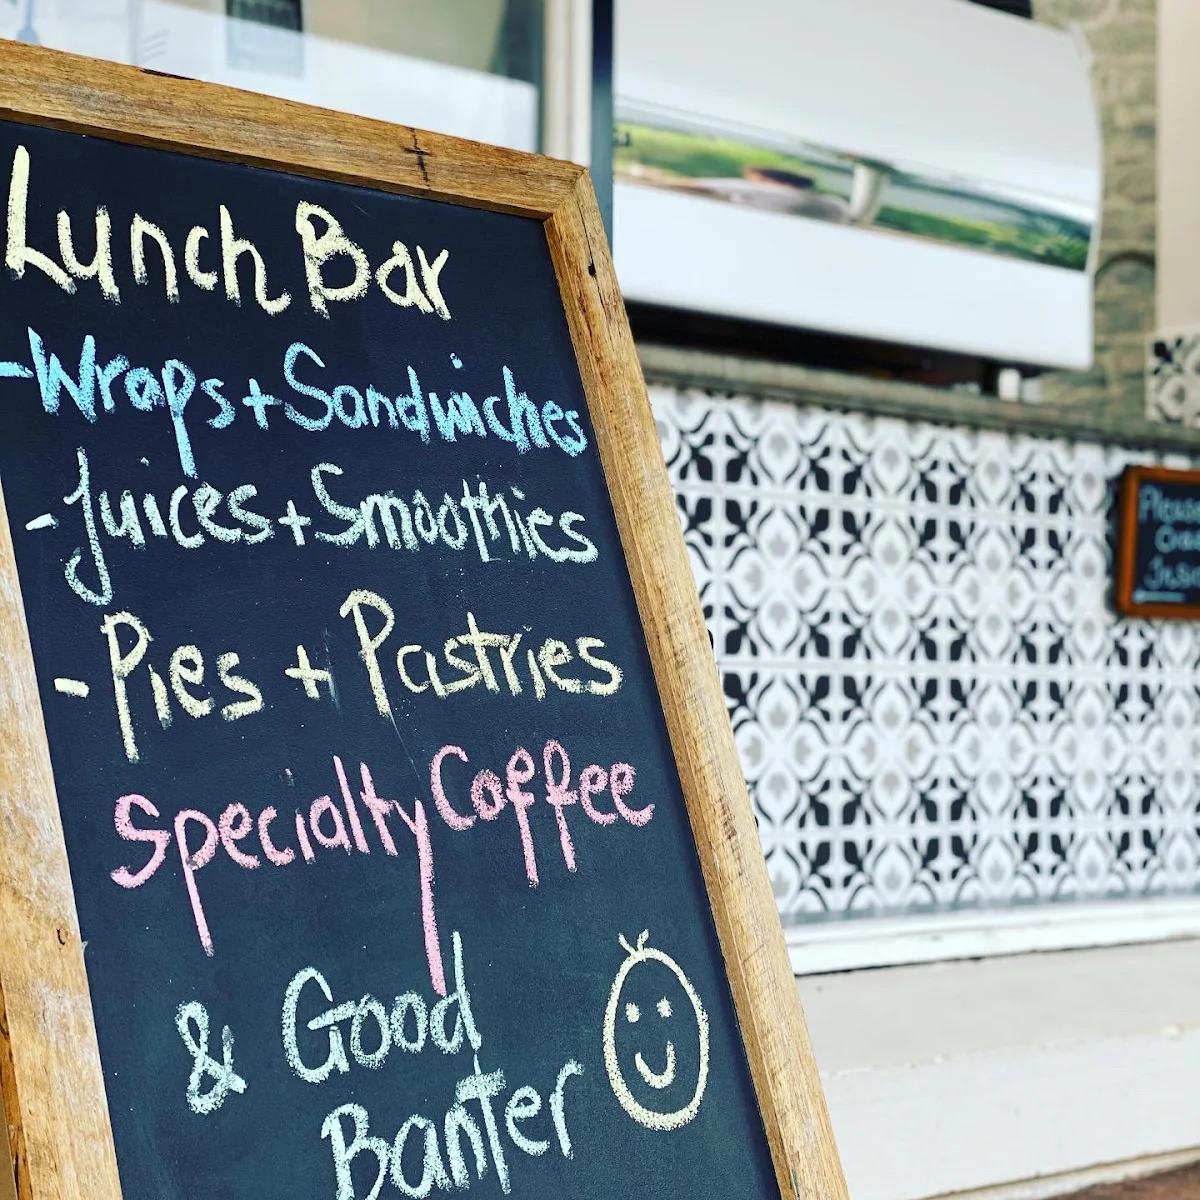 Lunch Bar
-Wraps+Sandwiches
-Juices+Smoothies
-Pies + Pastries
Specialty Coffee
& Good
Banter